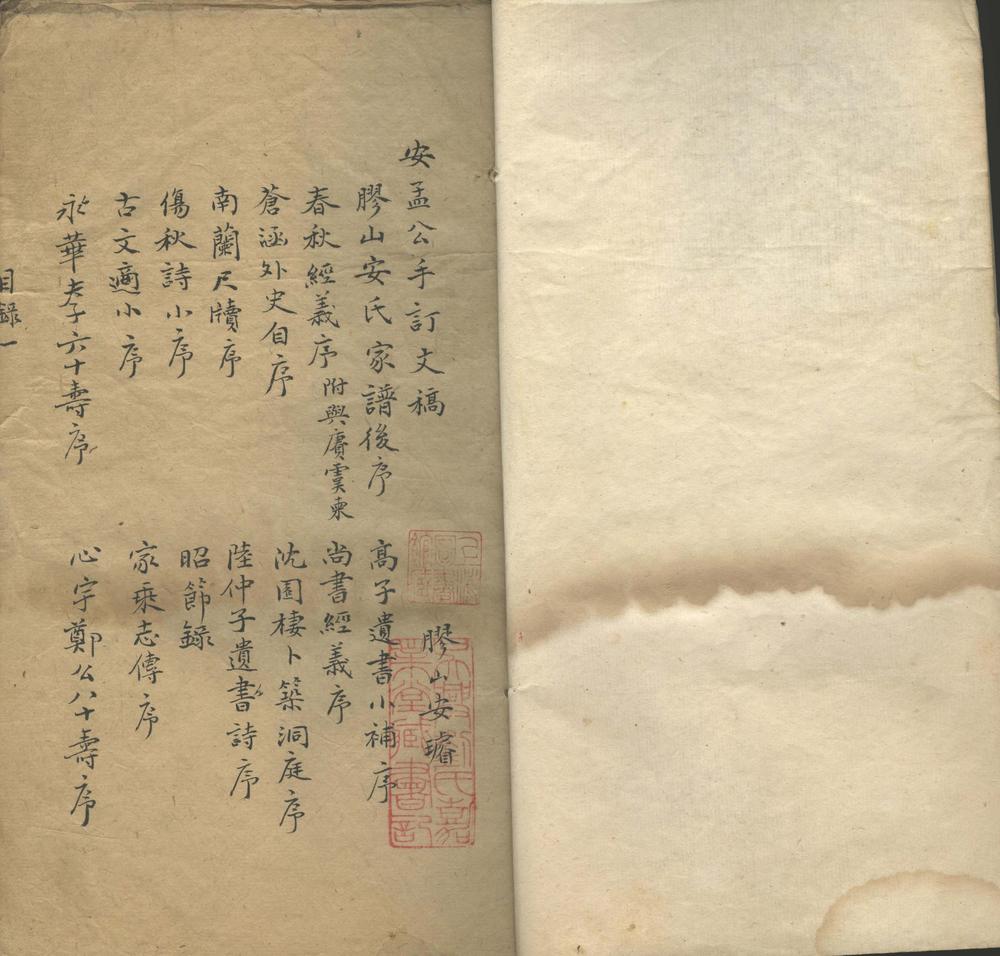 安孟公手訂文稿
膠山安璿
膠山安氏家譜後序
高子遺書小補序
春秋經義序附與賡虞柬
尚書經義序
蒼涵外史自序
沈園棲卜築洞庭序
南蘭尺牘序
陸仲子遺書詩序
傷秋詩小序
昭節錄
古文適小序
家乘志傳序
永華夫子六十壽序
心宇鄭公八十壽序
目錄一
吳興劉氏嘉業堂藏書記